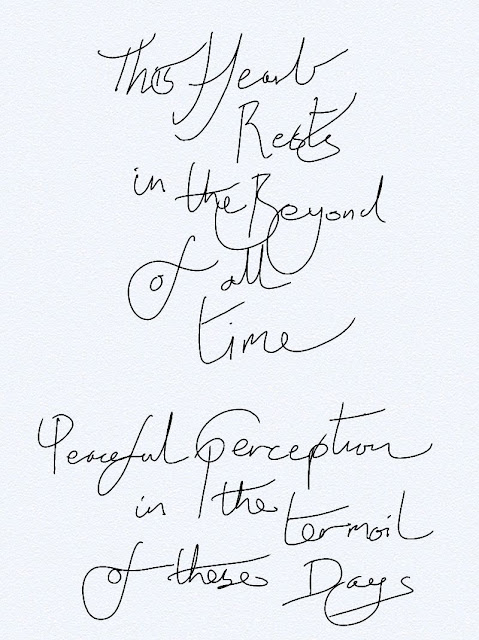 This Heart
Rests
in the Beyond
of all
time
Peaceful Perception
in the
termoil
of these Days